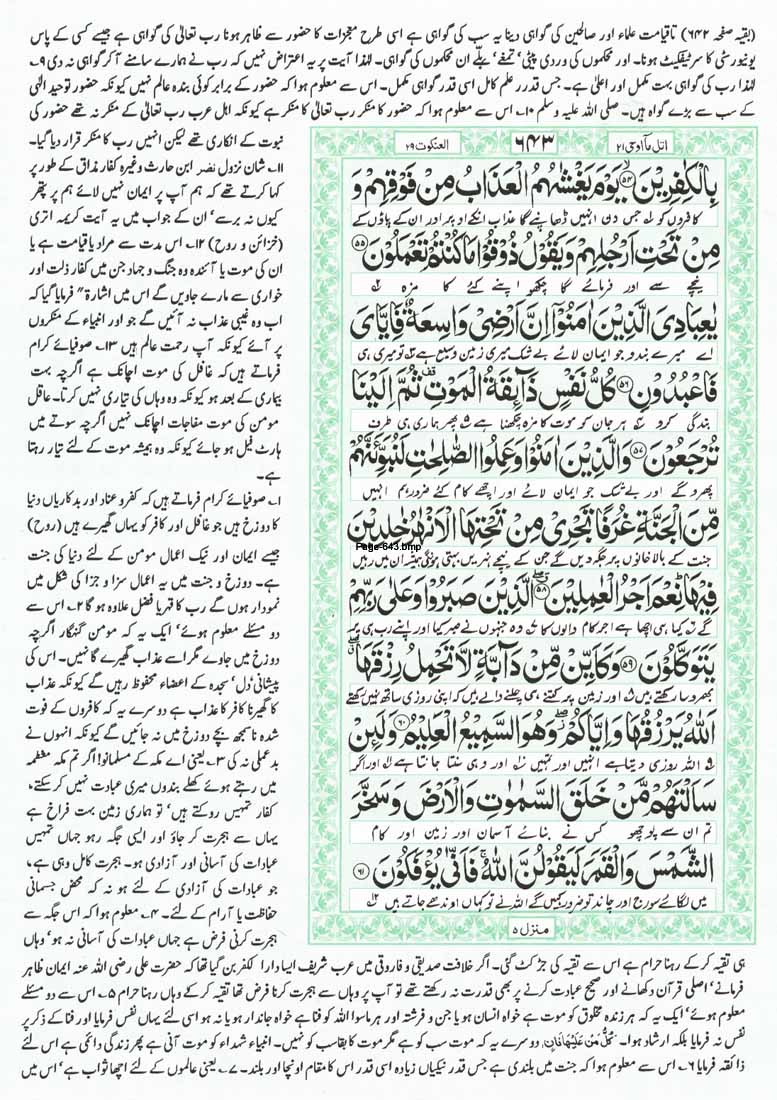 (بقیہ صفحہ ۶۴۲) تاقیامت علماء اور صالحین کی گواہی دینا یہ سب کی گواہی ہے اسی طرح معجزات کا حضور سے ظاہر ہونا رب تعالیٰ کی گواہی ہے جیسے کسی کے پاس
یونیورسٹی کا سرٹیفکیٹ ہونا۔ اور محکموں کی وردی پیٹی' تمغے' بِلّے ان محکموں کی گواہی۔ لہٰذا آیت پر یہ اعتراض نہیں کہ رب نے ہمارے سامنے آ کر گواہی نہ دی ۹۔
لہٰذا رب کی گواہی بہت مکمل اور اعلیٰ ہے۔ جس قدر علم کامل اسی قدر گواہی مکمل۔ اس سے معلوم ہوا کہ حضور کے برابر کوئی بندہ عالم نہیں کیونکہ حضور توحید الٰہی
کے سب سے بڑے گواہ ہیں۔ صلی اللہ علیہ وسلم ۱۰۔ اس سے معلوم ہوا کہ حضور کا منکر رب تعالیٰ کا منکر ہے کیونکہ اہل عرب رب تعالیٰ کے منکر نہ تھے حضور کی
نبوت کے انکاری تھے لیکن انہیں رب کا منکر قرار دیا گیا۔
۱۱۔ شان نزول نضر ابن حارث وغیرہ کفار مذاق کے طور پر
کہا کرتے تھے کہ ہم آپ پر ایمان نہیں لائے ہم پر پتھر
کیوں نہ برسے' ان کے جواب میں یہ آیت کریمہ اتری
(خزائن و روح) ۱۲۔ اس مدت سے مراد یا قیامت ہے یا
ان کی موت یا آئندہ وہ جنگ و جہاد جن میں کفار ذلت اور
خواری سے مارے جاویں گے اس میں اشارۃً فرمایا گیا کہ
اب وہ غیبی عذاب نہ آئیں گے جو اور انبیاء کے منکروں
پر آئے کیونکہ آپ رحمت عالم ہیں ۱۳۔ صوفیائے کرام
فرماتے ہیں کہ غافل کی موت اچانک ہے اگرچہ بہت
بیماری کے بعد ہو کیونکہ وہ وہاں کی تیاری نہیں کرتا۔ عاقل
مومن کی موت مفاجات اچانک نہیں اگرچہ سوتے میں
ہارٹ فیل ہو جائے کیونکہ وہ ہمیشہ موت کے لئے تیار رہتا
ہے۔
۱۔ صوفیائے کرام فرماتے ہیں کہ کفر و عناد اور بدکاریاں دنیا
کا دوزخ ہیں جو غافل اور کافر کو یہاں گھیرے ہیں (روح)
جیسے ایمان اور نیک اعمال مومن کے لئے دنیا کی جنت
ہے۔ دوزخ و جنت میں یہ اعمال سزا و جزا کی شکل میں
نمودار ہوں گے رب کا قہر یا فضل علاوہ ہو گا ۲۔ اس سے
دو مسئلے معلوم ہوئے' ایک یہ کہ مومن گنہگار اگرچہ
دوزخ میں جاوے مگر اسے عذاب گھیرے گا نہیں۔ اس کی
پیشانی' دل' سجدہ کے اعضاء محفوظ رہیں گے کیونکہ عذاب
کا گھیرنا کافر کا عذاب ہے دوسرے یہ کہ کافروں کے فوت
شدہ ناسمجھ بچے دوزخ میں نہ جائیں گے کیونکہ انہوں نے
بدعملی نہ کی ۳۔ یعنی اے مکہ کے مسلمانو! اگر تم مکہ معظمہ
میں رہتے ہوئے کھلے بندوں میری عبادت نہیں کر سکتے،
کفار تمہیں روکتے ہیں' تو ہماری زمین بہت فراخ ہے
یہاں سے ہجرت کر جاؤ اور ایسی جگہ رہو جہاں تمہیں
عبادات کی آسانی اور آزادی ہو۔ ہجرت کامل وہی ہے،
جو عبادات کی آزادی کے لئے ہو نہ کہ محض جسمانی
حفاظت یا آرام کے لئے۔ ۴۔ معلوم ہوا کہ اس جگہ سے
ہجرت کرنی فرض ہے جہاں عبادات کی آسانی نہ ہو' وہاں
اتل مآ اوحی ۲۱ ۶۴۳ العنکبوت ۲۹
بِالْكٰفِرِیْنَ ﴿۵۴﴾ یَوْمَ یَغْشٰىهُمُ الْعَذَابُ مِنْ فَوْقِهِمْ وَ
کافروں کو ۱؎ جس دن انہیں ڈھانپے گا عذاب انکے اوپر اور ان کے پاؤں کے
مِنْ تَحْتِ اَرْجُلِهِمْ وَ یَقُوْلُ ذُوْقُوْا مَا كُنْتُمْ تَعْمَلُوْنَ ﴿۵۵﴾
نیچے سے اور فرمائے گا چکھو اپنے کئے کا مزہ ۲؎
یٰعِبَادِیَ الَّذِیْنَ اٰمَنُوْۤا اِنَّ اَرْضِیْ وَاسِعَةٌ فَاِیَّایَ
اے میرے بندو جو ایمان لائے بے شک میری زمین وسیع ہے ۳؎ تو میری ہی
فَاعْبُدُوْنِ ﴿۵۶﴾ كُلُّ نَفْسٍ ذَآىِٕقَةُ الْمَوْتِ ثُمَّ اِلَیْنَا
بندگی کرو ۴؎ ہر جان کو موت کا مزہ چکھنا ہے ۵؎ پھر ہماری ہی طرف
تُرْجَعُوْنَ ﴿۵۷﴾ وَ الَّذِیْنَ اٰمَنُوْا وَ عَمِلُوا الصّٰلِحٰتِ لَنُبَوِّئَنَّهُمْ
پھرو گے اور بے شک جو ایمان لائے اور اچھے کام کئے ضرور ہم انہیں
مِّنَ الْجَنَّةِ غُرَفًا تَجْرِیْ مِنْ تَحْتِهَا الْاَنْهٰرُ خٰلِدِیْنَ
Page-643.bmp
جنت کے بالا خانوں پر جگہ دیں گے جن کے نیچے نہریں بہتی ہوں گی ہمیشہ ان میں رہیں
فِیْهَا نِعْمَ اَجْرُ الْعٰمِلِیْنَ ﴿۵۸﴾ الَّذِیْنَ صَبَرُوْا وَ عَلٰى رَبِّهِمْ
گے ۶؎ کیا ہی اچھا ہے اجر کام والوں کا ۷؎ وہ جنہوں نے صبر کیا اور اپنے رب ہی پر
یَتَوَكَّلُوْنَ ﴿۵۹﴾ وَ كَاَیِّنْ مِّنْ دَآبَّةٍ لَّا تَحْمِلُ رِزْقَهَا
بھروسہ رکھتے ہیں ۸؎ اور زمین پر کتنے ہی چلنے والے ہیں کہ اپنی روزی ساتھ نہیں رکھتے
اَللّٰهُ یَرْزُقُهَا وَ اِیَّاكُمْ وَ هُوَ السَّمِیْعُ الْعَلِیْمُ ﴿۶۰﴾ وَ لَىِٕنْ
۹؎ اللہ روزی دیتا ہے انہیں اور تمہیں ۱۰؎ اور وہی سنتا جانتا ہے ۱۱؎ اور اگر
سَاَلْتَهُمْ مَّنْ خَلَقَ السَّمٰوٰتِ وَ الْاَرْضَ وَ سَخَّرَ
تم ان سے پوچھو کس نے بنائے آسمان اور زمین اور کام
الشَّمْسَ وَ الْقَمَرَ لَیَقُوْلُنَّ اللّٰهُ فَاَنّٰى یُؤْفَكُوْنَ ﴿۶۱﴾
میں لگائے سورج اور چاند تو ضرور کہیں گے اللہ نے تو کہاں اوندھے جاتے ہیں ۱۲؎
منزل ۵
ہی تقیہ کر کے رہنا حرام ہے اس سے تقیہ کی جڑ کٹ گئی۔ اگر خلافت صدیقی و فاروقی میں عرب شریف ایسا دارا لکفر بن گیا تھا کہ حضرت علی رضی اللہ عنہ ایمان ظاہر
فرمانے' اصلی قرآن دکھانے اور صحیح عبادت کرنے پر بھی قدرت نہ رکھتے تھے تو آپ پر وہاں سے ہجرت کرنا فرض تھا تقیہ کر کے وہاں رہنا حرام ۵۔ اس سے دو مسئلے
معلوم ہوئے' ایک یہ کہ ہر زندہ مخلوق کو موت ہے خواہ انسان ہو یا جن و فرشتہ اور ہر ماسوا اللہ کو فنا ہے خواہ جاندار ہو یا نہ ہو اسی لئے یہاں نفس فرمایا اور فنا کے ذکر پر
نفس نہ فرمایا بلکہ ارشاد ہوا۔ كُلُّ مَنْ عَلَیْهَا فَانٍ دوسرے یہ کہ موت سب کو ہے مگر موت کا بقا سب کو نہیں۔ انبیاء شہداء کو موت آنی ہے پھر زندگی دائمی ہے اس لئے
ذائقہ فرمایا ۶۔ اس سے معلوم ہوا کہ جنت میں بلندی ہے جس قدر نیکیاں زیادہ اسی قدر اس کا مقام اونچا اور بلند۔ ۷۔ یعنی عالموں کے لئے اچھا ثواب ہے' اس میں